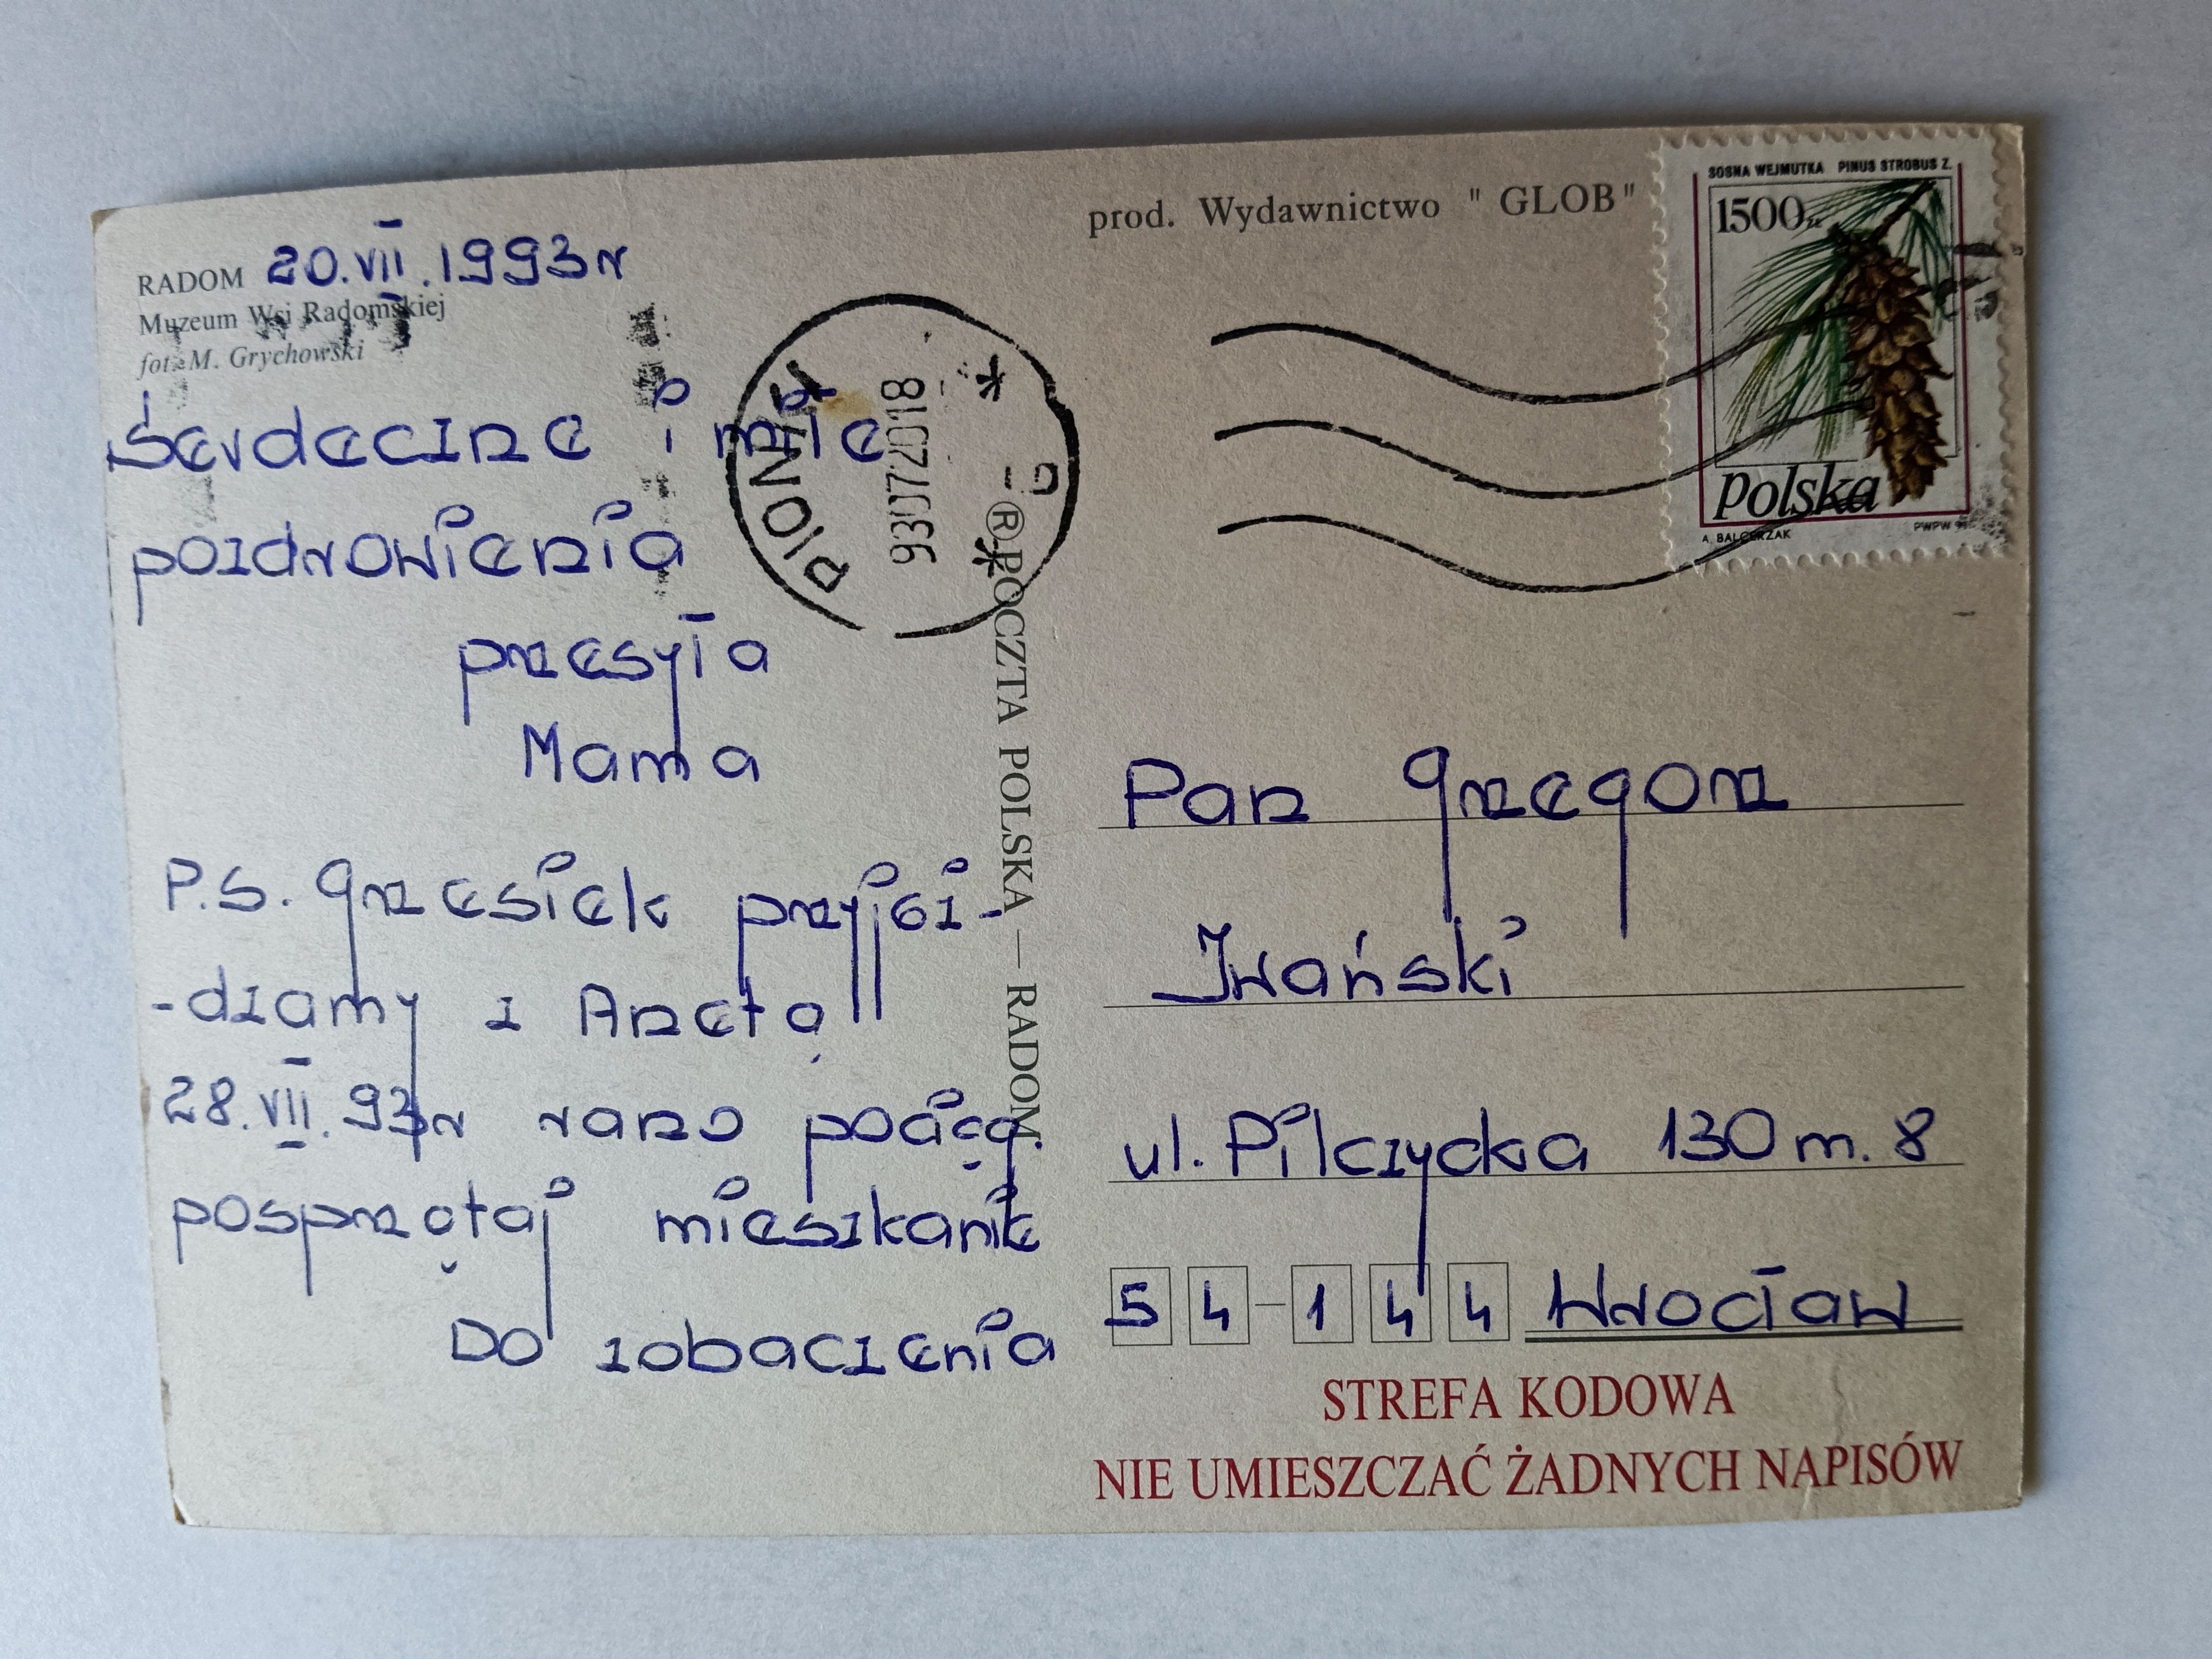 RADOM 20.VII.1993r
Muzeum Wsi Radomskiej
fot. M. Grychowski
Serdeczne i miłe
pozdrowienia
przesyła
Mama
P.S. Grzesiek przyjeż-
-dzamy z Anetą
28.VII.93r rano pociąg.
posprzątaj mieszkanie
Do zobaczenia
PIONKI
930720 18
® POCZTA POLSKA — RADOM
prod. Wydawnictwo "GLOB"
SOSNA WEJMUTKA PINUS STROBUS Z.
1500 zł
Polska
A. BALCERZAK PWPW
Pan Grzegorz
Iwański
ul. Pilczycka 130 m. 8
54-144 Wrocław
STREFA KODOWA
NIE UMIESZCZAĆ ŻADNYCH NAPISÓW